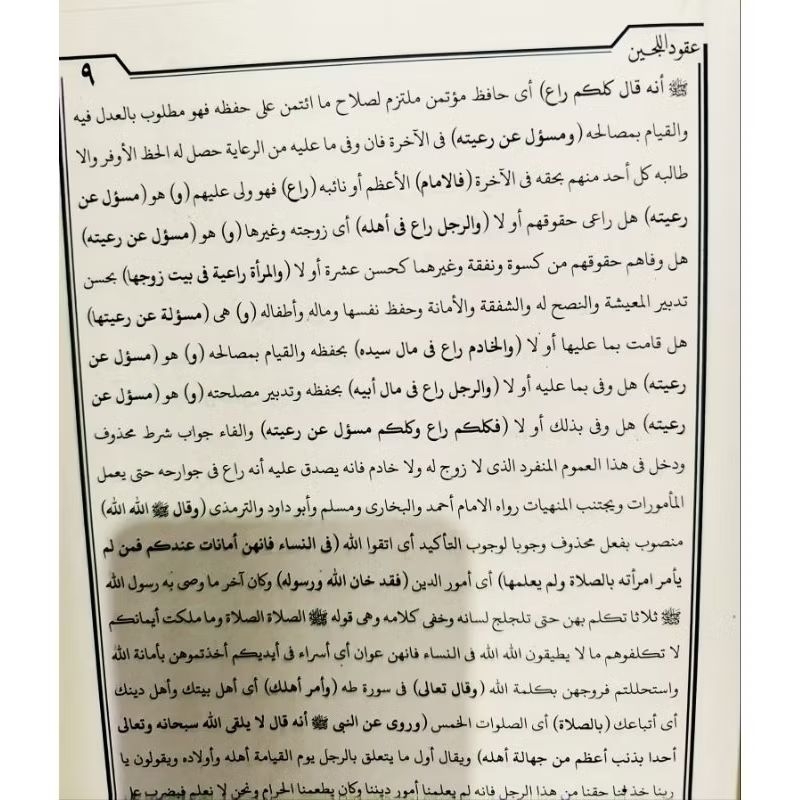 عقود اللجين
٩
ﷺ أنه قال كلكم راع) أى حافظ مؤتمن ملتزم لصلاح ما ائتمن على حفظه فهو مطلوب بالعدل فيه
والقيام بمصالحه (ومسؤل عن رعيته) فى الآخرة فان وفى ما عليه من الرعاية حصل له الحظ الأوفر والا
طالبه كل أحد منهم بحقه فى الآخرة (فالامام) الأعظم أو نائبه (راع) فهو ولى عليهم (و) هو (مسؤل عن
رعيته) هل راعى حقوقهم أو لا (والرجل راع فى أهله) أى زوجته وغيرها (و) هو (مسؤل عن رعيته)
هل وفاهم حقوقهم من كسوة ونفقة وغيرهما كحسن عشرة أو لا (والمرأة راعية فى بيت زوجها) بحسن
تدبير المعيشة والنصح له والشفقة والأمانة وحفظ نفسها وماله وأطفاله (و) هى (مسؤلة عن رعيتها)
هل قامت بما عليها أو لا (والخادم راع فى مال سيده) بحفظه والقيام بمصالحه (و) هو (مسؤل عن
رعيته) هل وفى بما عليه أو لا (والرجل راع فى مال أبيه) بحفظه وتدبير مصلحته (و) هو (مسؤل عن
رعيته) هل وفى بذلك أو لا (فكلكم راع وكلكم مسؤل عن رعيته) والفاء جواب شرط محذوف
ودخل فى هذا العموم المنفرد الذى لا زوج له ولا خادم فانه يصدق عليه أنه راع فى جوارحه حتى يعمل
المأمورات ويجتنب المنهيات رواه الامام أحمد والبخارى ومسلم وأبو داود والترمذى (وقال ﷺ الله الله)
منصوب بفعل محذوف وجوبا لوجوب التأكيد أى اتقوا الله (فى النساء فانهن أمانات عندكم فمن لم
يأمر امرأته بالصلاة ولم يعلمها) أى أمور الدين (فقد خان الله ورسوله) وكان آخر ما وصى به رسول الله
ﷺ ثلاثا تكلم بهن حتى تلجلج لسانه وخفى كلامه وهى قوله ﷺ الصلاة الصلاة وما ملكت أيمانكم
لا تكلفوهم ما لا يطيقون الله الله فى النساء فانهن عوان أى أسراء فى أيديكم أخذتموهن بأمانة الله
واستحللتم فروجهن بكلمة الله (وقال تعالى) فى سورة طه (وأمر أهلك) أى أهل بيتك وأهل دينك
أى أتباعك (بالصلاة) أى الصلوات الخمس (وروى عن النبى ﷺ أنه قال لا يلقى الله سبحانه وتعالى
أحدا بذنب أعظم من جهالة أهله) ويقال أول ما يتعلق بالرجل يوم القيامة أهله وأولاده ويقولون يا
ربنا خذ لنا حقنا من هذا الرجل فانه لم يعلمنا أمور ديننا وكان يطعمنا الحرام ونحن لا نعلم فيضرب على